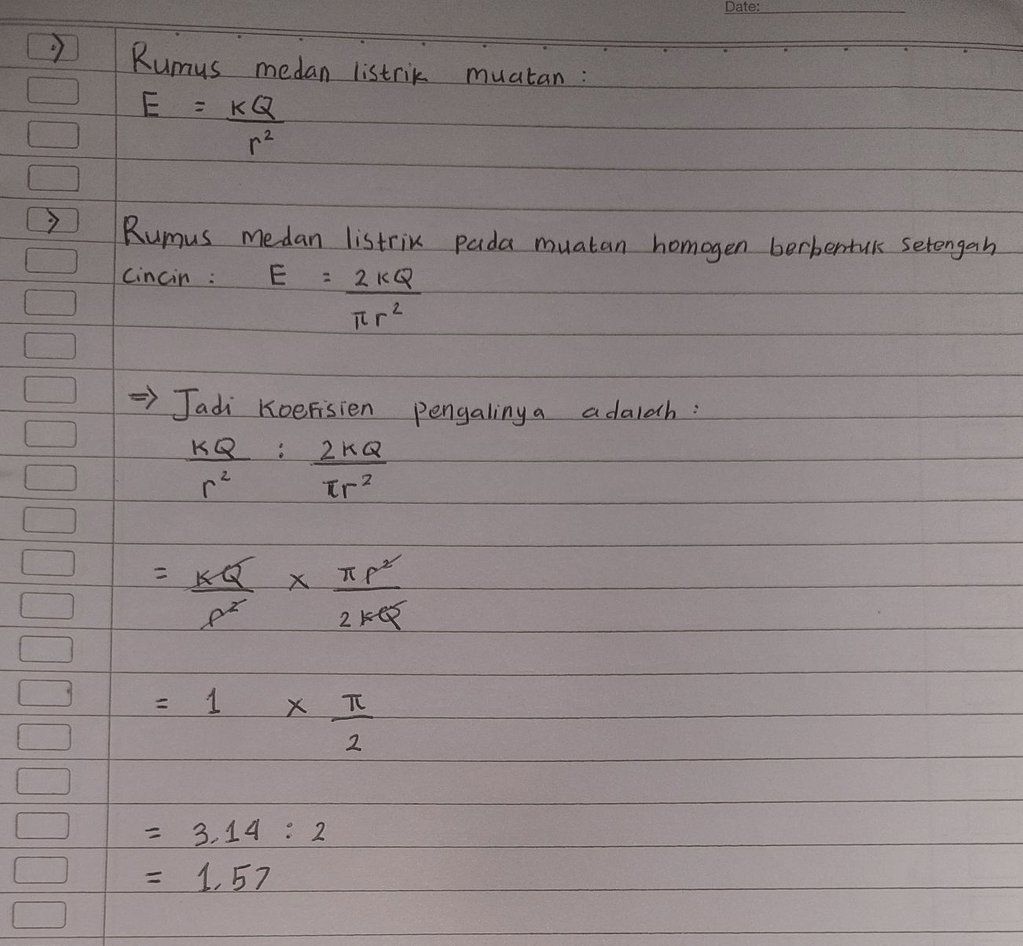 Date:
Rumus medan listrik muatan :
E = kQ
r²
Rumus medan listrik pada muatan homogen berbentuk setengah
cincin : E = 2kQ
πr²
⇒ Jadi koefisien pengalinya adalah :
kQ : 2kQ
r² πr²
= kQ x πr²
r² 2kQ
= 1 x π
2
= 3.14 : 2
= 1,57